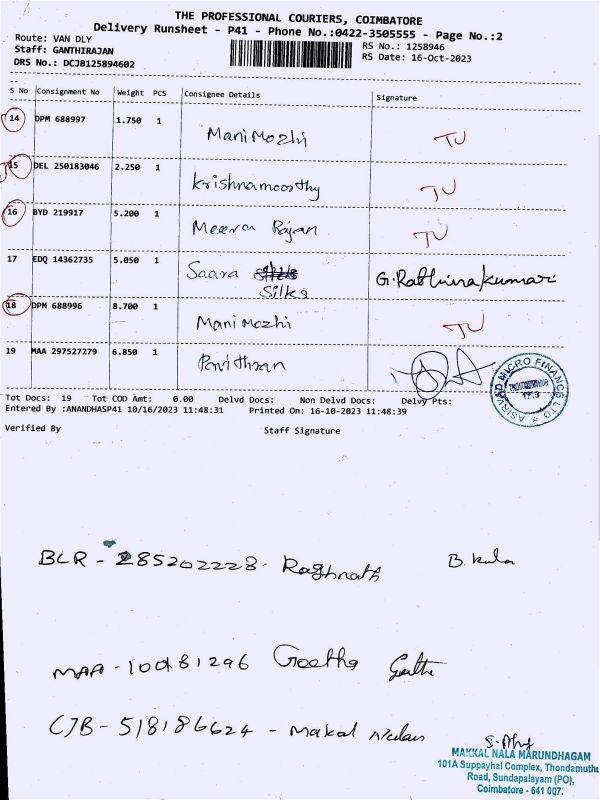 THE PROFESSIONAL COURIERS, COIMBATORE
Delivery Runsheet - P41 - Phone No.:0422-3505555 - Page No.:2
Route: VAN DLY
RS No.: 1258946
Staff: GANTHIRAJAN
RS Date: 16-Oct-2023
DRS No.: DCJB125894602
S No Consignment No Weight PCS Consignee Details Signature
14 DPM 688997 1.750 1 Manimozhi TU
15 DEL 250183046 2.250 1 Krishnamoorthy TU
16 BYD 219917 5.200 1 Meera Rajan TU
17 EDQ 14362735 5.050 1 Saara G.Rathinakumari
Silks
18 DPM 688996 8.700 1 Manimozhi TU
19 MAA 297527279 6.850 1 Pavithran
ASIRVAD MICRO FINANCE LTD
Tot Docs: 19 Tot COD Amt: 0.00 Delvd Docs: Non Delvd Docs: Delvy Pts:
Entered By :ANANDHASP41 10/16/2023 11:48:31 Printed On: 16-10-2023 11:48:39
Verified By Staff Signature
BLR - 285202228 - Raghnath B. Kala
MAA - 10081296 Geetha
CJB - 518186624 - Makal
MAKKAL NALA MARUNDHAGAM
101A Suppayhal Complex, Thondamuthu
Road, Sundapalayam (PO),
Coimbatore - 641 007.